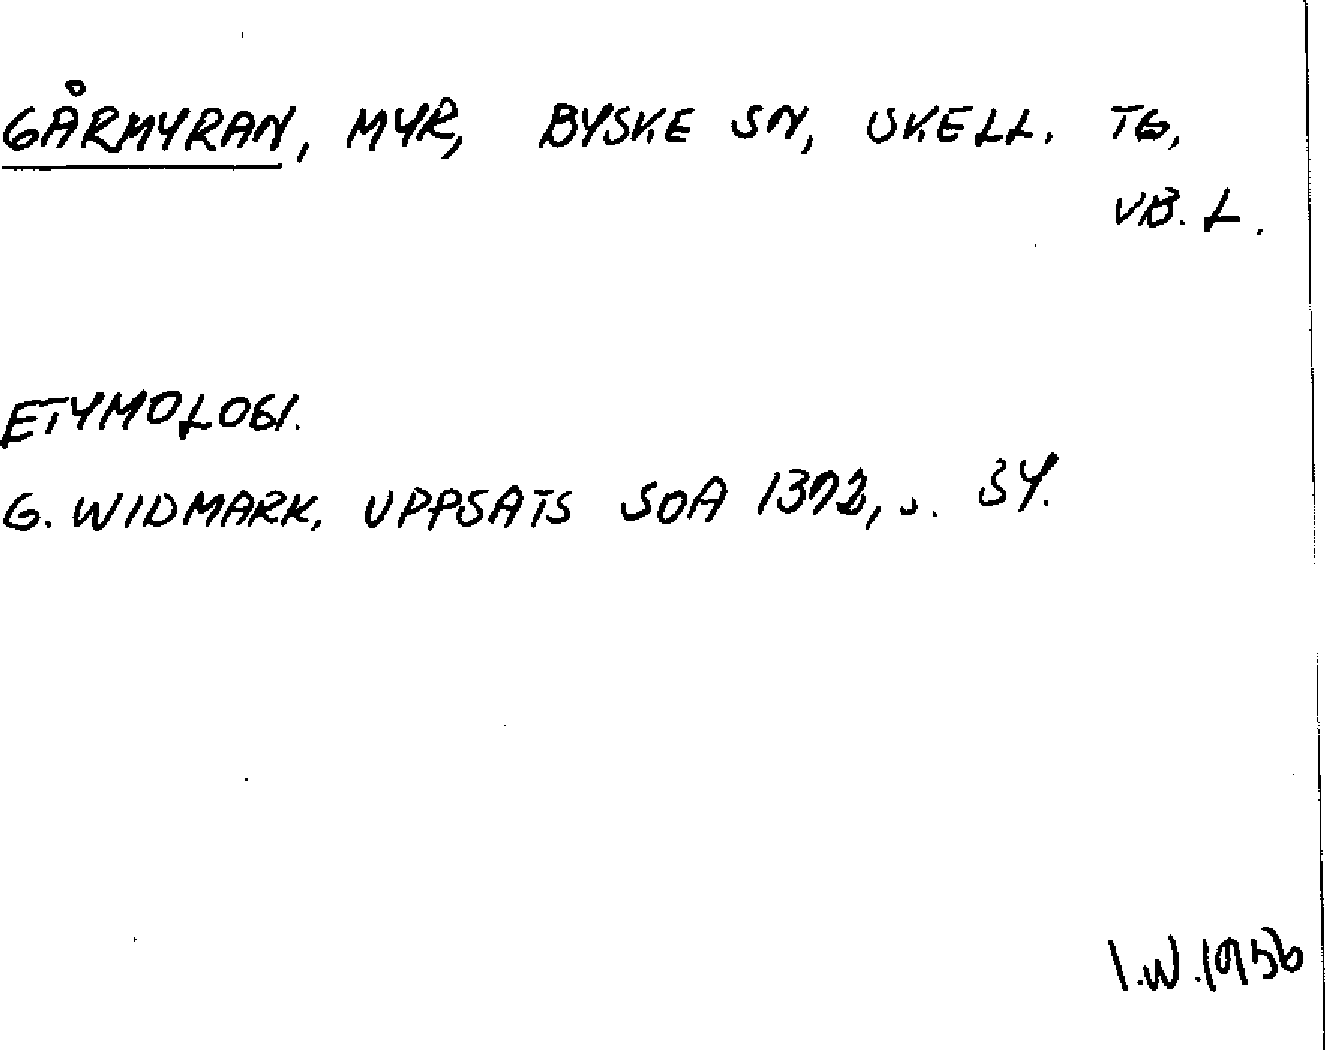 GÅRMYRAN, MYR, BYSKE SN, SKELL. TG,
VB. L.
ETYMOLOGI.
G. WIDMARK, UPPSATS SOA 1372, s. 34.
I.W. 1956